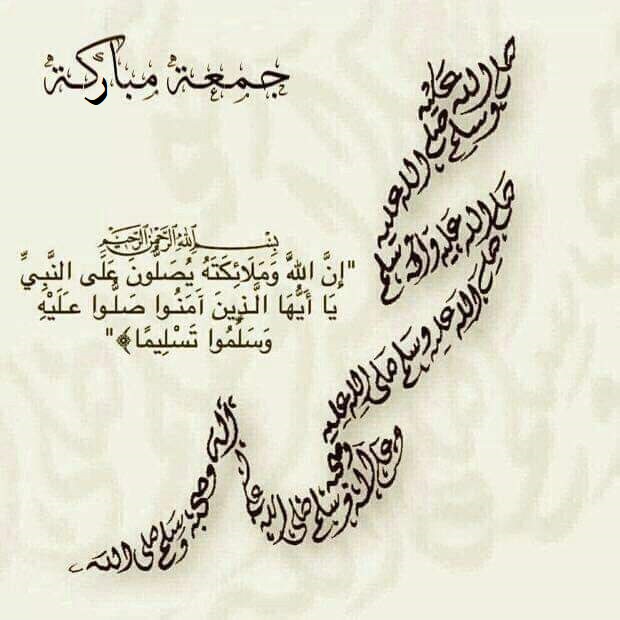 جمعة مباركة
بسم الله الرحمن الرحيم
"إِنَّ اللَّهَ وَمَلَائِكَتَهُ يُصَلُّونَ عَلَى النَّبِيِّ
يَا أَيُّهَا الَّذِينَ آمَنُوا صَلُّوا عَلَيْهِ
وَسَلِّمُوا تَسْلِيمًا﴾"
صلى الله عليه
وسلم صلى الله عليه
صلى الله عليه وآله وسلم
صلى الله عليه وسلم صلى الله عليه
وصحبه
وعلى آله وسلم صلى الله عليه
آله وصحبه وسلم صلى الله